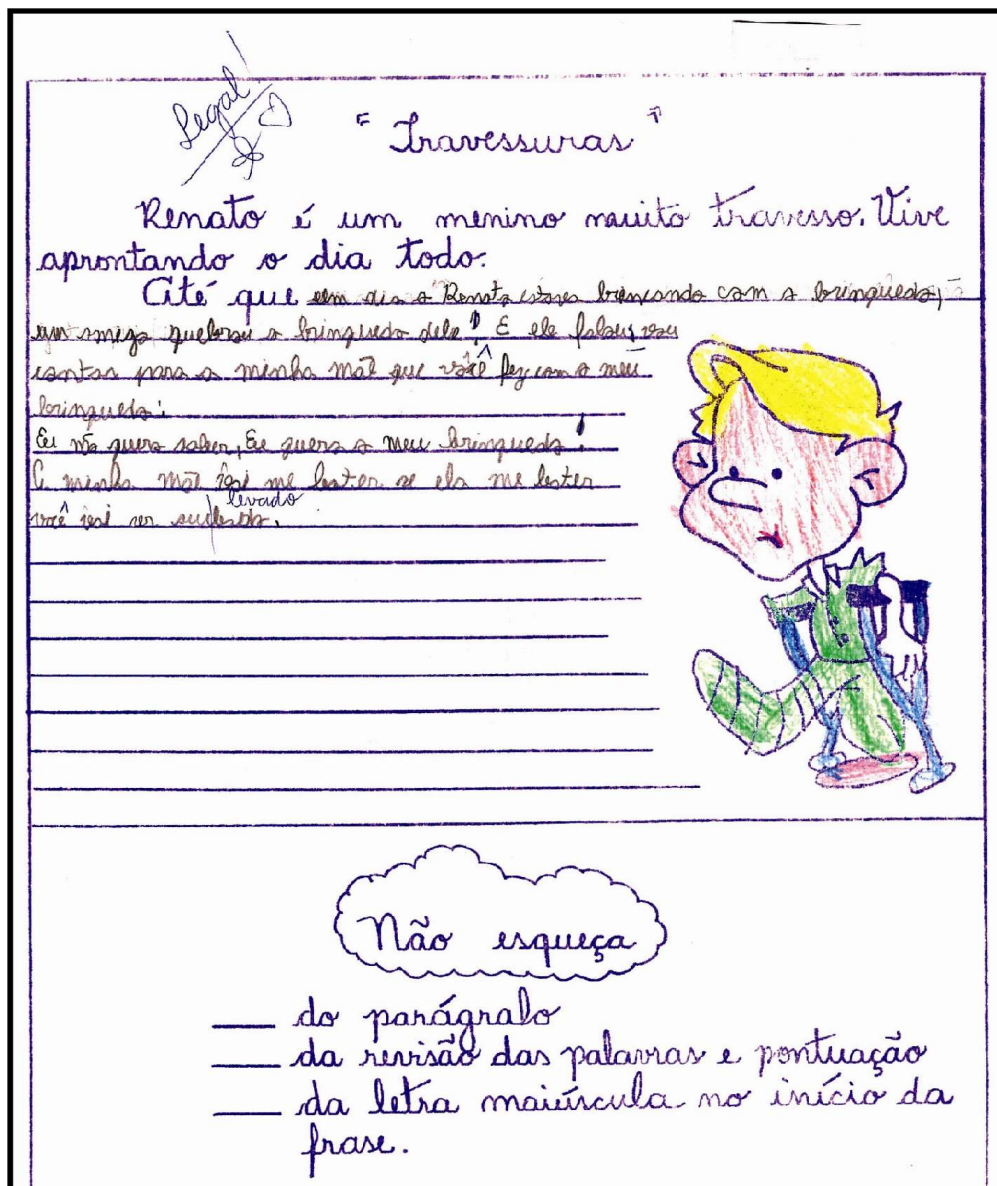 Legal!
"Travessuras"
Renato é um menino muito travesso. Vive
aprontando o dia todo.
Até que um dia o Renato estava brincando com o brinquedo,
um amigo quebrou o brinquedo dele! E ele falou, vou
contar para a minha mãe que você fez com o meu
brinquedo!
Eu não quero saber, Eu quero o meu brinquedo!
A minha mãe irá me bater se ela me bater
levado
você irá ser
Não esqueça
do parágrafo
da revisão das palavras e pontuação
da letra maiúscula no início da
frase.